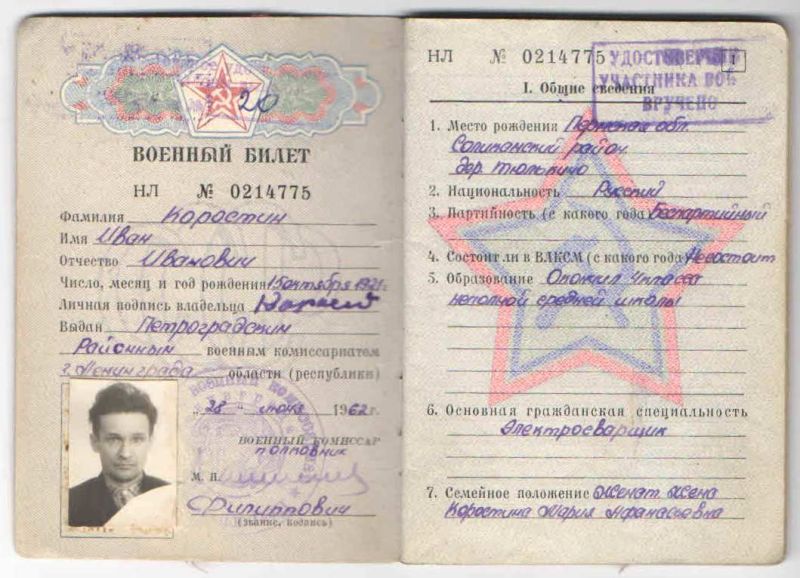 20
ВОЕННЫЙ БИЛЕТ
НЛ № 0214775
Фамилия Коростин
Имя Иван
Отчество Иванович
Число, месяц и год рождения 15 октября 1921г.
Личная подпись владельца
Выдан Петроградским
Районным военным комиссариатом
г. Ленинграда области (республики)
„28" 1962 г.
ВОЕННЫЙ КОМИССАР
полковник
М. П.
Филиппович
(звание, подпись)
НЛ № 0214775 1
УДОСТОВЕРЕН
УЧАСТНИКА ВОВ
ВРУЧЕНО
I. Общие сведения
1. Место рождения Пермская обл.
район
дер.
2. Национальность Русский
3. Партийность (с какого года) Беспартийный
4. Состоит ли в ВЛКСМ (с какого года) Несостоит
5. Образование Окончил 4 класса
неполной средней школы
6. Основная гражданская специальность
Электросварщик
7. Семейное положение Женат жена
Коростина Мария Афанасьевна